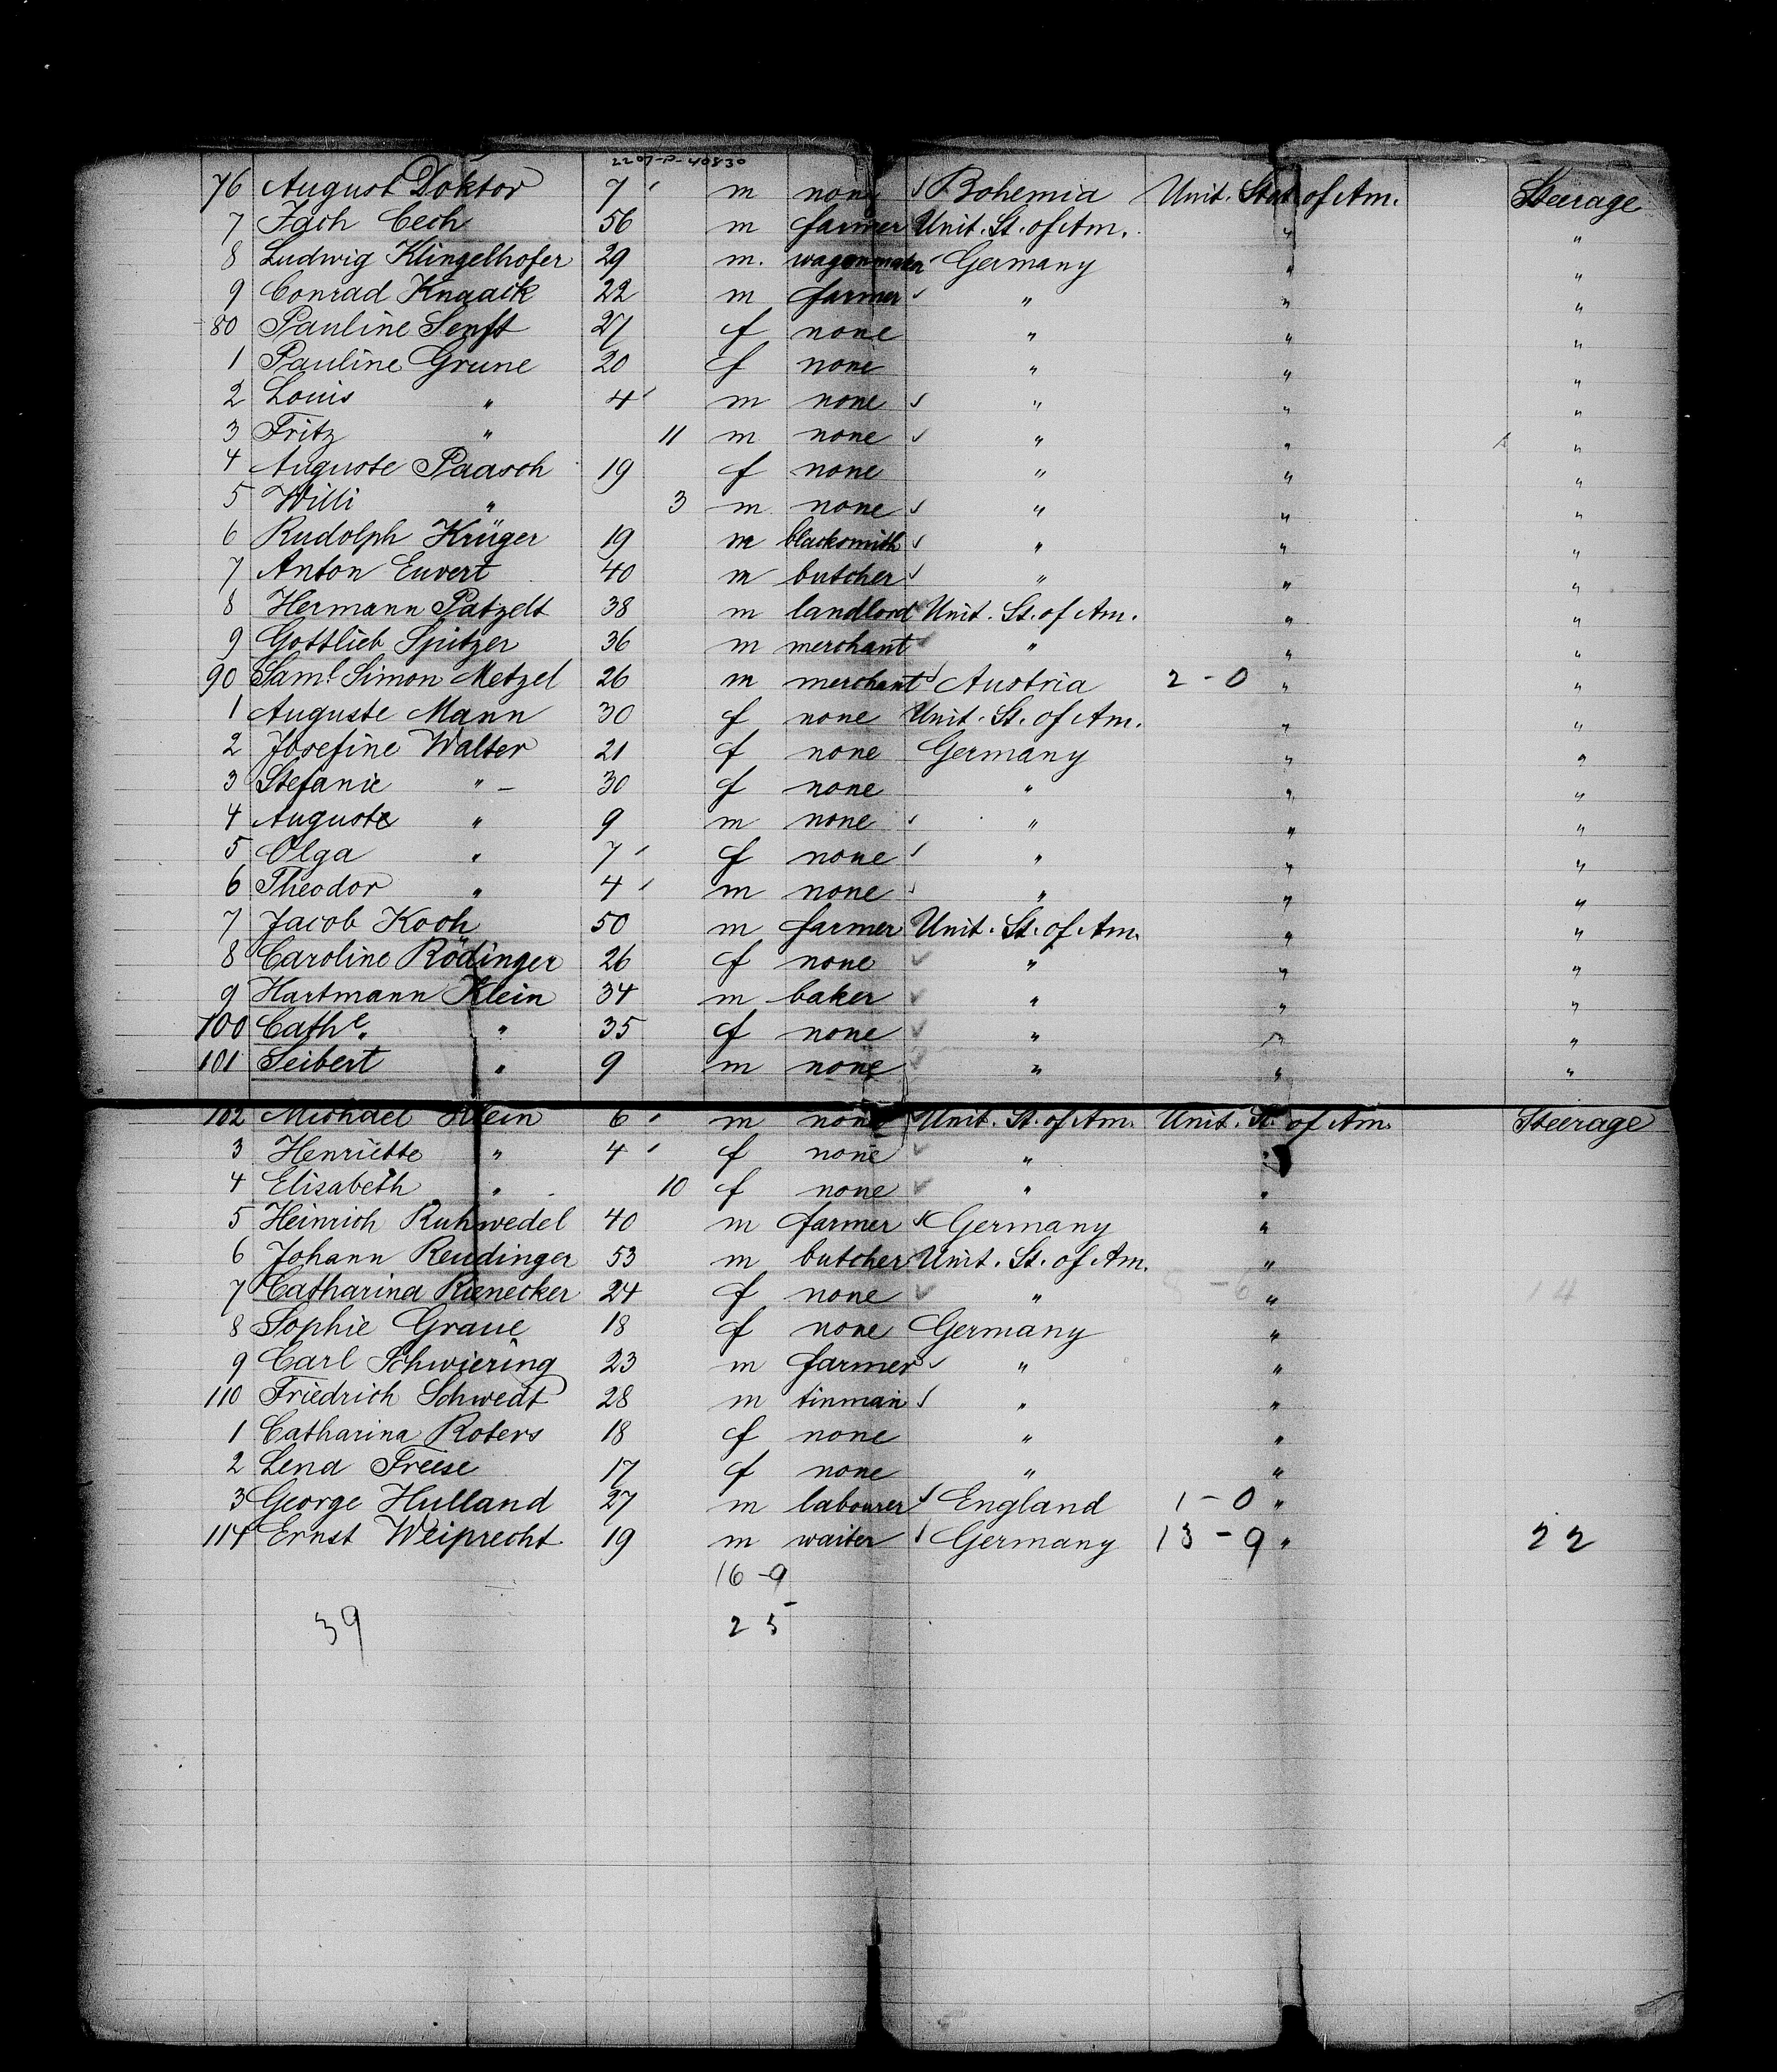 2207-P-40830
76 August Doktor 7 m none Bohemia Unit. Stat. of Am. Steerage
7 Zach Cech 56 m farmer Unit. St. of Am. " "
8 Ludwig Klingelhofer 29 m. wagonmaker Germany " "
9 Conrad Knaack 22 m farmer " " "
80 Pauline Senft 27 f none " " "
1 Pauline Grune 20 f none " " "
2 Louis " 4 m none " " "
3 Fritz " 11 m none " " "
4 Auguste Paasch 19 f none " " "
5 Willi " 3 m none " " "
6 Rudolph Krüger 19 m blacksmith " " "
7 Anton Euvert 40 m butcher " " "
8 Hermann Patzelt 38 m landlord Unit. St. of Am. " "
9 Gottlieb Spitzer 36 m merchant " " "
90 Saml Simon Metzel 26 m merchant Austria 2 - 0 " "
1 Auguste Mann 30 f none Unit. St. of Am. " "
2 Josefine Walter 21 f none Germany " "
3 Stefanie " 30 f none " " "
4 Auguste " 9 m none " " "
5 Olga " 7 f none " " "
6 Theodor " 4 m none " " "
7 Jacob Koch 50 m farmer Unit. St. of Am. " "
8 Caroline Rödinger 26 f none " " "
9 Hartmann Klein 34 m baker " " "
100 Cathe. " 35 f none " " "
101 Seibert " 9 m none " " "
102 Michael Klein 6 m none Unit. St. of Am. Unit. St. of Am. Steerage
3 Henriette " 4 f none " "
4 Elisabeth " 10 f none " "
5 Heinrich Ruhwedel 40 m farmer Germany "
6 Johann Reudinger 53 m butcher Unit. St. of Am. "
7 Catharina Rienecker 24 f none " - 6 " 14
8 Sophie Graue 18 f none Germany "
9 Carl Schwiering 23 m farmer " "
110 Friedrich Schwedt 28 m tinman " "
1 Catharina Roters 18 f none " "
2 Lena Freese 17 f none " "
3 George Hulland 27 m labourer England 1 - 0 "
114 Ernst Weiprecht 19 m waiter Germany 13 - 9 " 22
16 - 9
39 25